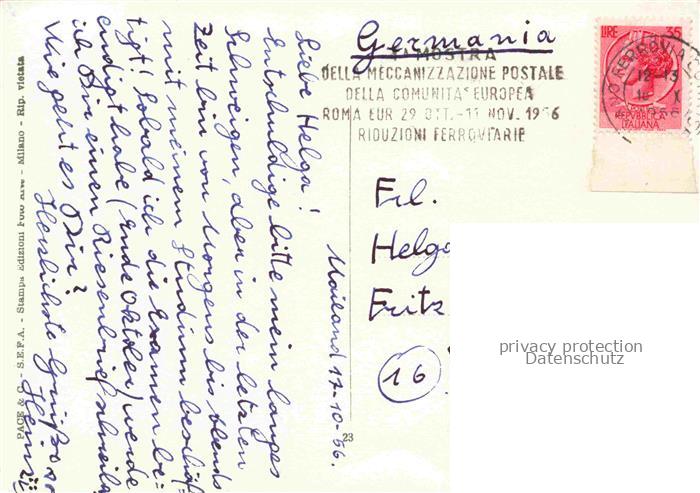 Mailand 17-10-56.
Liebe Helga!
Entschuldige bitte mein langes
Schweigen, aber in der letzten
Zeit bin von Morgens bis Abends
mit meinem Studium beschäf-
tigt! Sobald ich die Examen be-
endigt habe (Ende Oktober) werde
ich Dir einen Riesenbrief schreib
Wie geht es Dir?
Herzlichste Grüße
Heinz
PAGE & C. - S.E.F.A. - Stampa Edizioni Foto Rive - Milano - Rip. vietata
23
Germania
MOSTRA
DELLA MECCANIZZAZIONE POSTALE
DELLA COMUNITA' EUROPEA
ROMA EUR 29 OTT. - 11 NOV. 1966
RIDUZIONI FERROVIARIE
LIRE 35
REPVBBLICA
ITALIANA
FERROVIA
12-13
Frl.
Helga
Fritz
16
privacy protection
Datenschutz